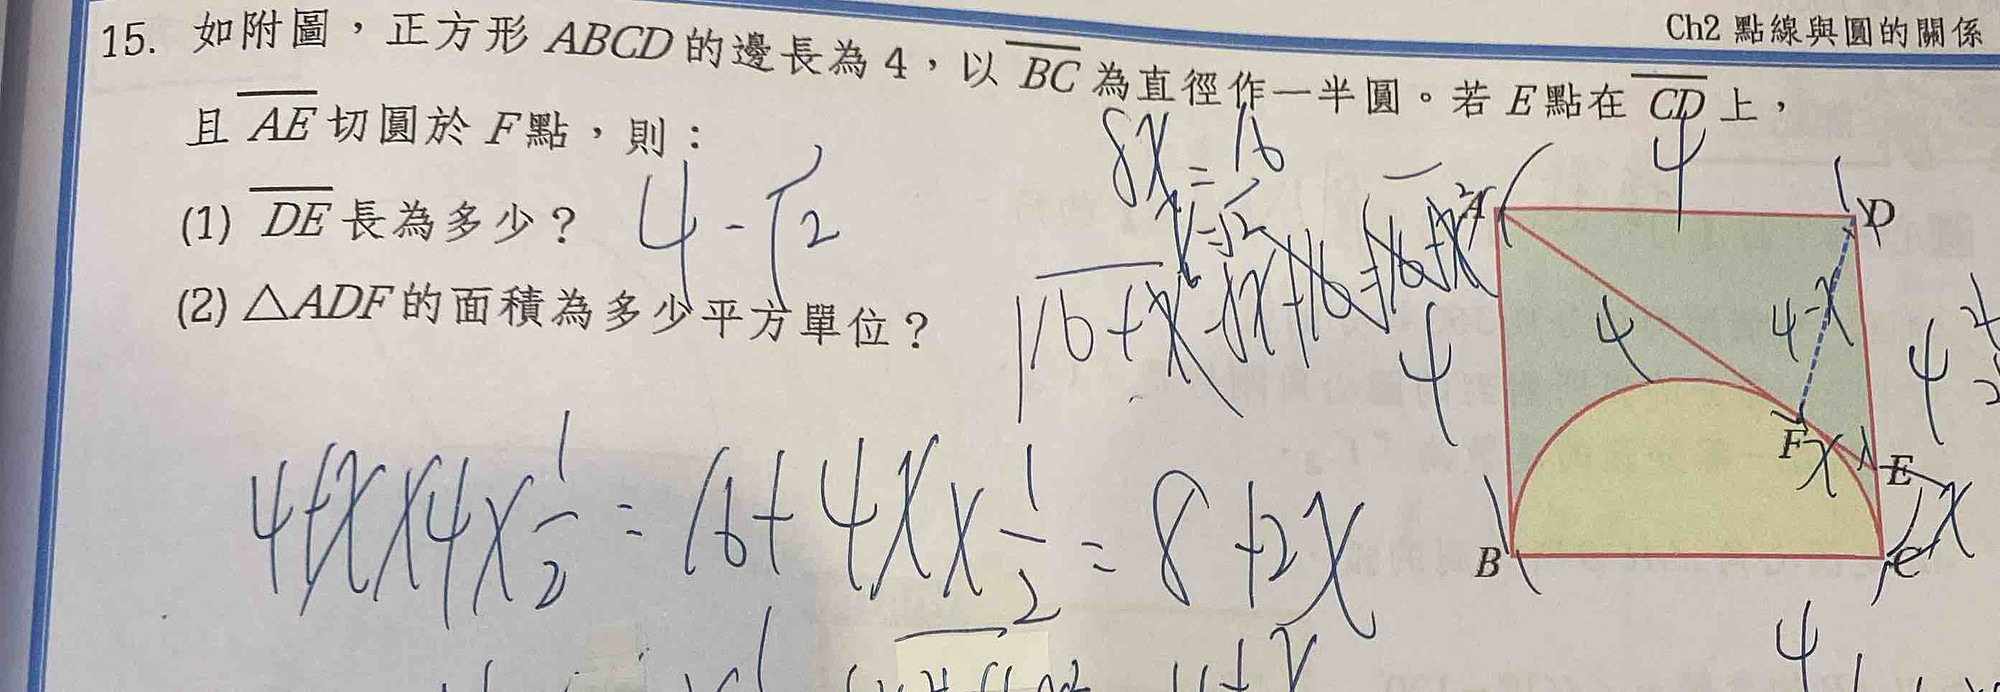 Ch2 點線與圓的關係
15. 如附圖，正方形 ABCD 的邊長為 4，以 BC 為直徑作一半圓。若 E 點在 CD 上，
且 AE 切圓於 F 點，則：
(1) DE 長為多少？ 4-√2
(2) △ADF 的面積為多少平方單位？
8x=16
x=√2
4
A
D
4
4
4-x
4
F
x
E
x
B
C
4+x×4×1/2=16+4x×1/2=8+2x
4